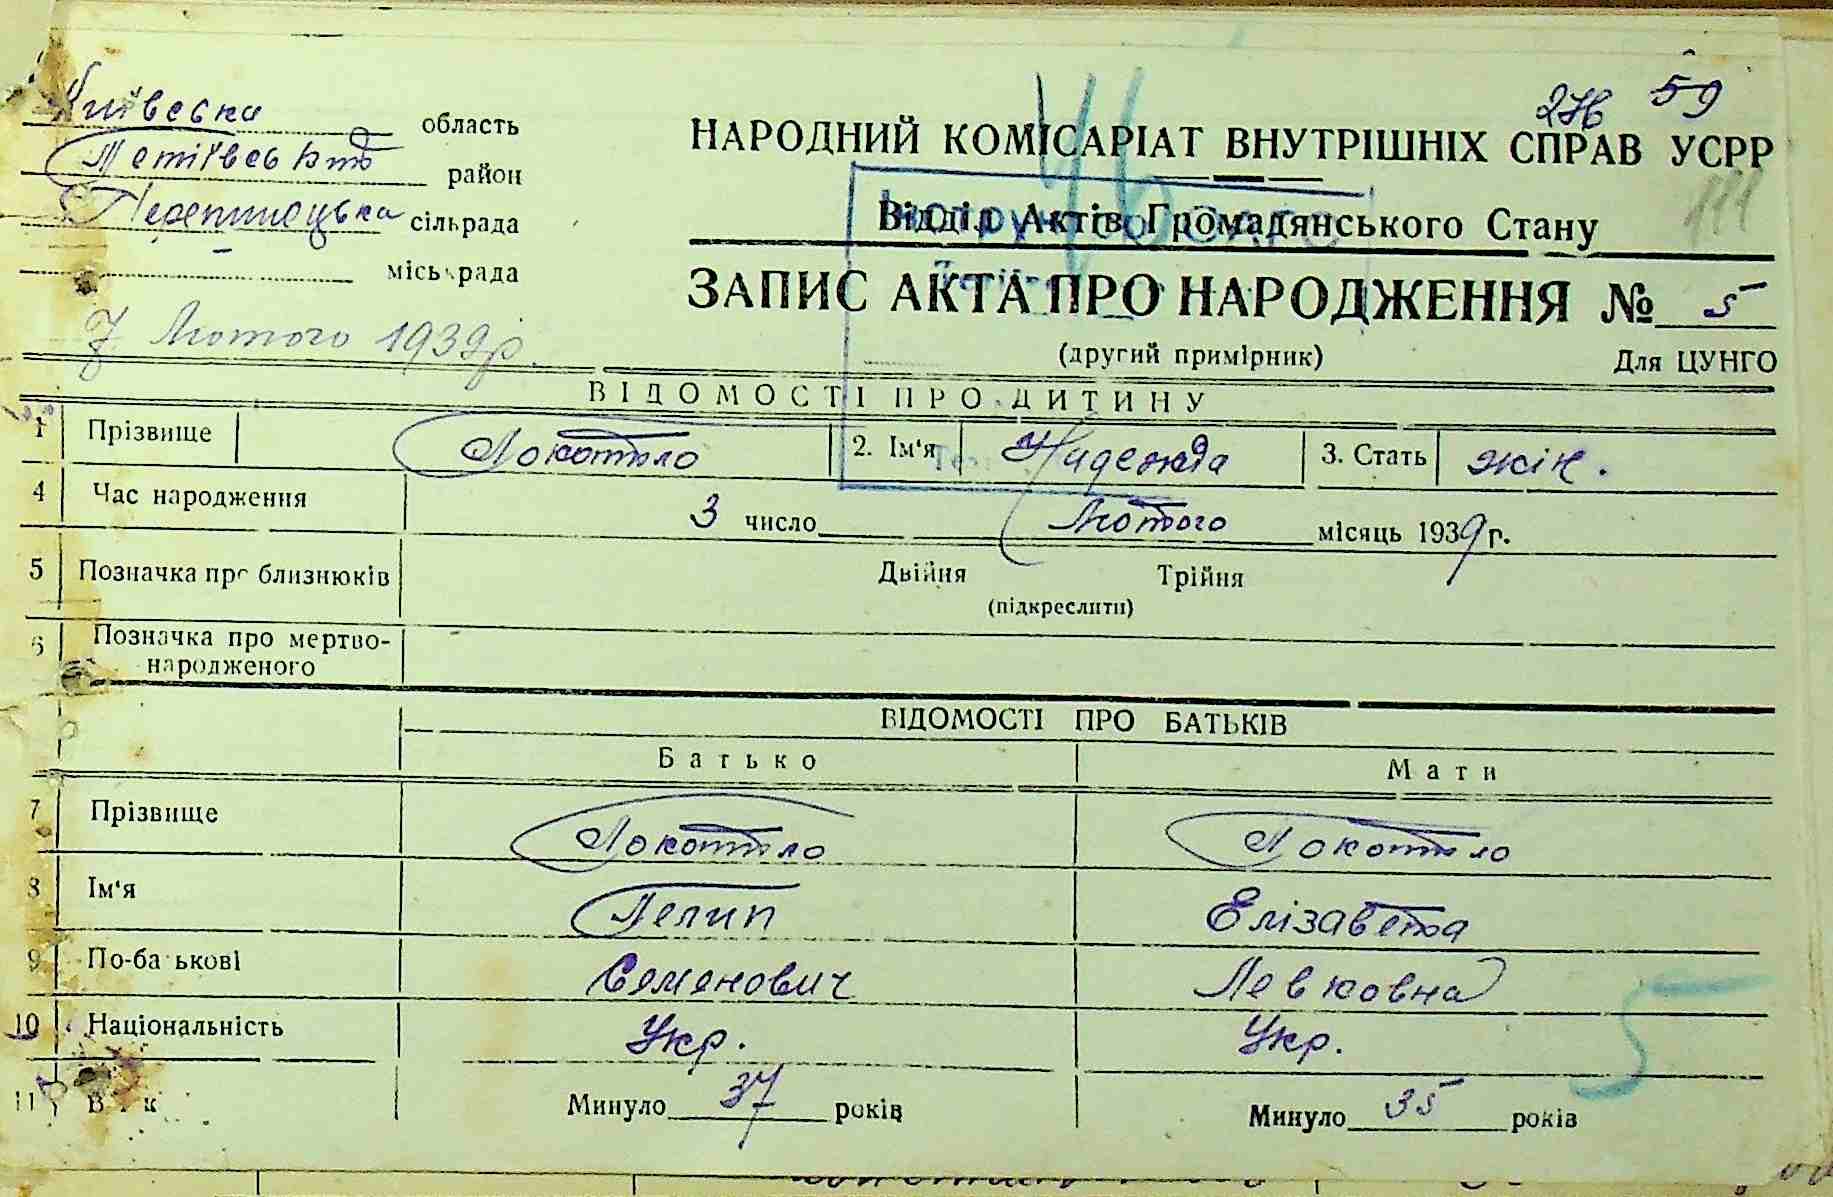 Київська область
Тетіївський район
сільрада
міськрада
7 Лютого 1939 р.
46
276 59
НАРОДНИЙ КОМІСАРІАТ ВНУТРІШНІХ СПРАВ УСРР
111
Відділ Актів Громадянського Стану
ЗАПИС АКТА ПРО НАРОДЖЕННЯ № 5
(другий примірник) Для ЦУНГО
ВІДОМОСТІ ПРО ДИТИНУ
1 Прізвище Локотило 2. Ім'я Надежда 3. Стать жін.
4 Час народження 3 число Лютого місяць 1939 г.
5 Позначка про близнюків Двійня Трійня
(підкреслити)
6 Позначка про мертво-
народженого
ВІДОМОСТІ ПРО БАТЬКІВ
Батько Мати
7 Прізвище Локотило Локотило
8 Ім'я Пелип Елізавета
9 По-батькові Семенович Левковна
10 Національність Укр. Укр.
5
11 Вік Минуло 37 років Минуло 35 років